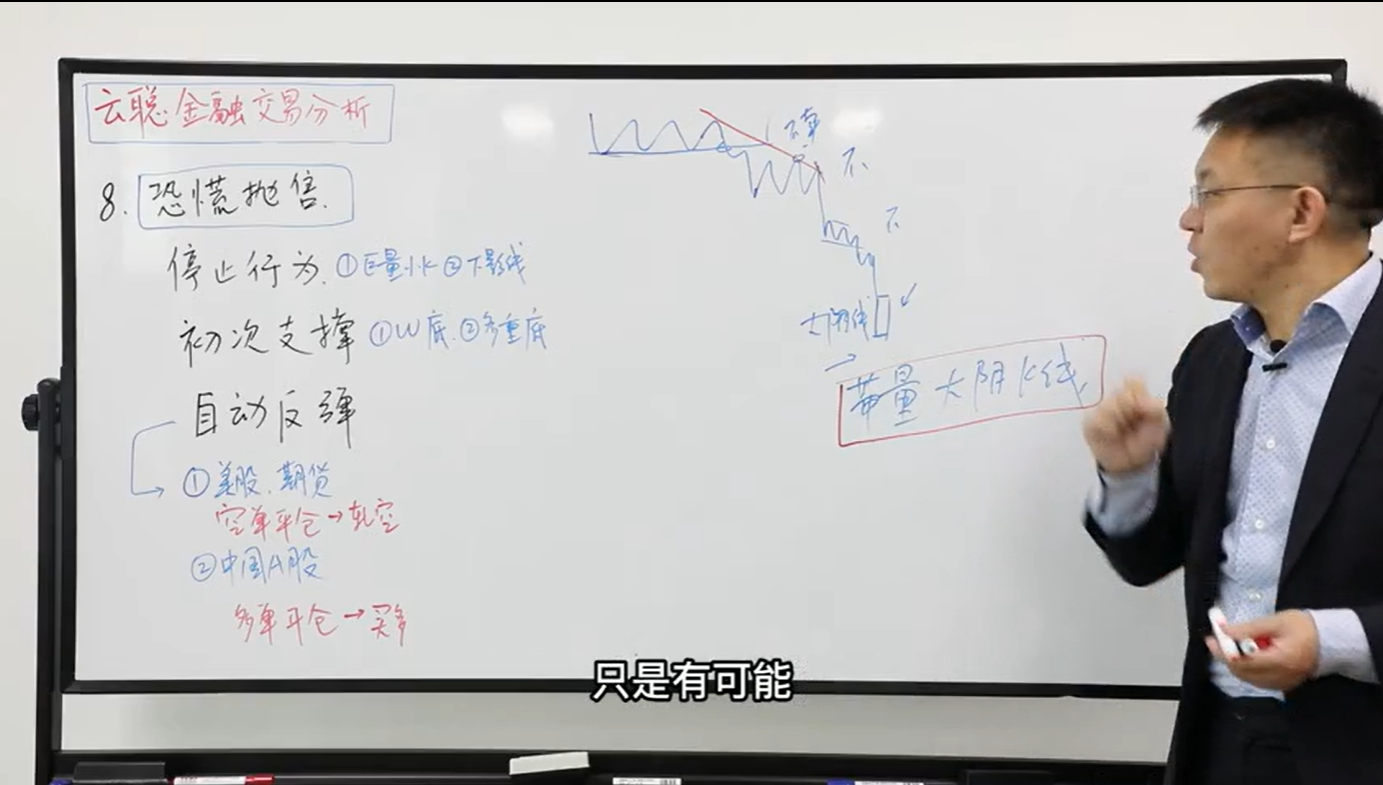 云聪金融交易分析
8. 恐慌抛售.
停止行为. ①巨量小K ②下影线
初次支撑 ①W底. ②多重底
自动反弹
①美股. 期货
空单平仓→轧空
②中国A股
多单平仓→买多
不算
不
不
大阴线
带量大阴K线
只是有可能